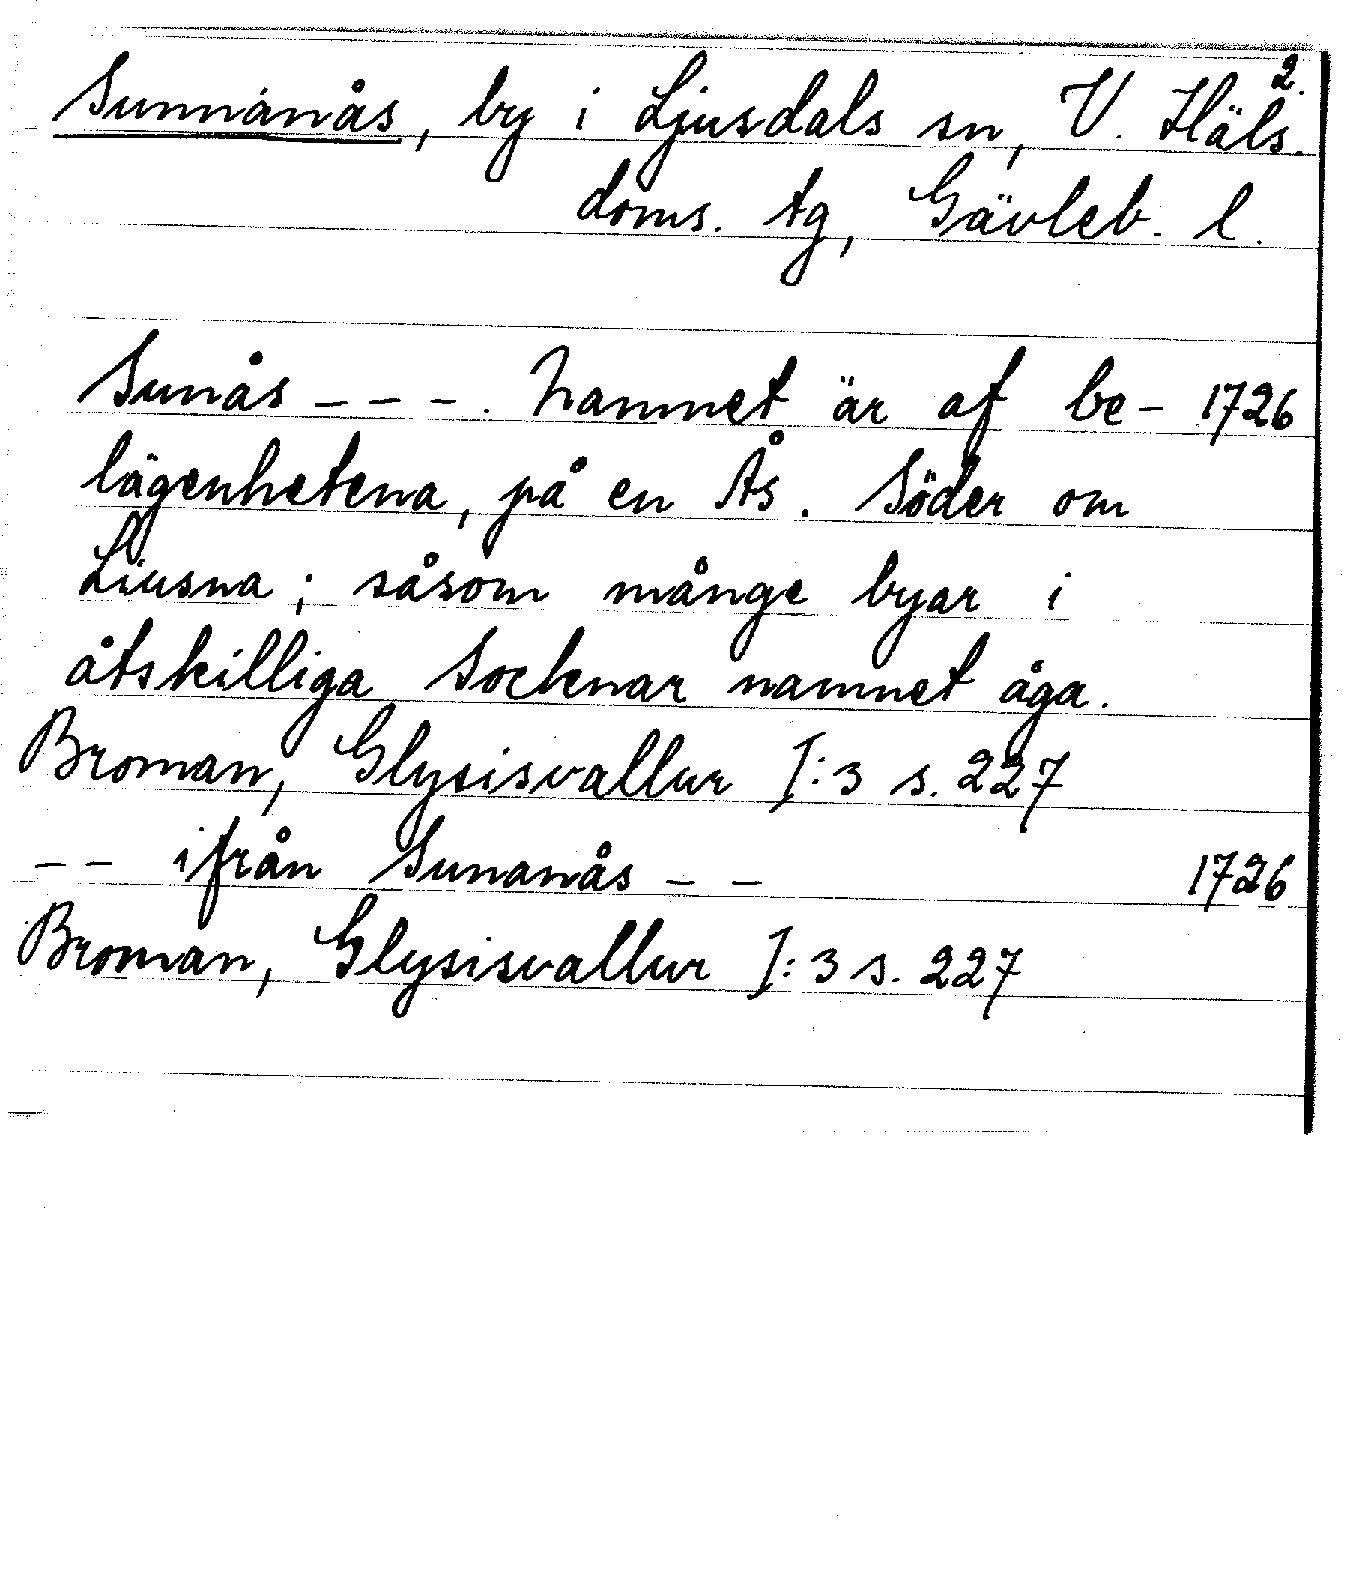 2.
Sunnanås, by i Ljusdals sn, V. Häls.
doms. tg, Gävleb. l.
Sunås - - - . Namnet är af be- 1726
lägenhetena, på en Ås. Söder om
Liusna ; såsom månge byar i
åtskilliga Socknar namnet åga.
Broman, Glysisvallur I:3 s. 227
- - ifrån Sunanås - - 1726
Broman, Glysisvallur I:3 s. 227